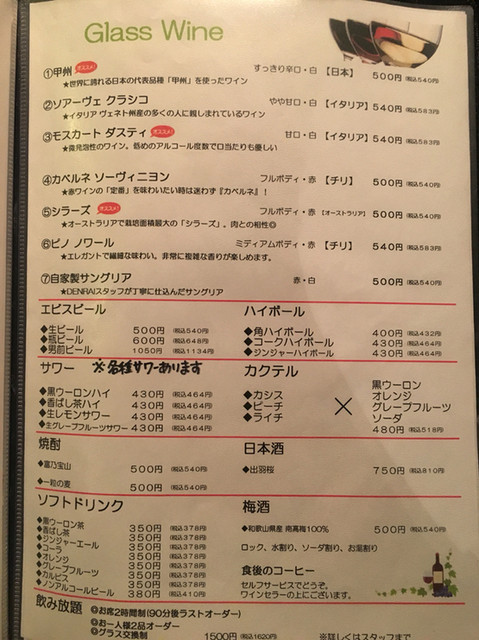 Glass Wine
①甲州 オススメ! すっきり辛口・白【日本】 500円(税込540円)
★世界に誇れる日本の代表品種「甲州」を使ったワイン
②ソアーヴェ クラシコ やや甘口・白【イタリア】540円(税込583円)
★イタリア ヴェネト州産の多くの人に親しまれているワイン
③モスカート ダスティ オススメ! 甘口・白【イタリア】540円(税込583円)
★微発泡性のワイン。低めのアルコール度数で口当たりも優しい
④カベルネ ソーヴィニヨン フルボディ・赤【チリ】 500円(税込540円)
★赤ワインの「定番」を味わいたい時は迷わず『カベルネ』!
⑤シラーズ オススメ! フルボディ・赤【オーストラリア】500円(税込540円)
★オーストラリアで栽培面積最大の「シラーズ」。肉との相性◎
⑥ピノ ノワール ミディアムボディ・赤【チリ】 540円(税込583円)
★エレガントで繊細な味わい。非常に複雑な香りが楽しめます。
⑦自家製サングリア 赤・白 500円(税込540円)
★DENRAIスタッフが丁寧に仕込んだサングリア
エビスビール
◆生ビール 500円(税込540円)
◆瓶ビール 600円(税込648円)
◆男前ビール 1050円(税込1134円)
ハイボール
◆角ハイボール 400円(税込432円)
◆コークハイボール 430円(税込464円)
◆ジンジャーハイボール 430円(税込464円)
サワー ※各種サワーあります
◆黒ウーロンハイ 430円(税込464円)
◆香ばし茶ハイ 430円(税込464円)
◆生レモンサワー 430円(税込464円)
◆生グレープフルーツサワー 430円(税込464円)
カクテル
◆カシス
◆ピーチ
◆ライチ
×
黒ウーロン
オレンジ
グレープフルーツ
ソーダ
480円(税込518円)
焼酎
◆富乃宝山 500円(税込540円)
◆一粒の麦 500円(税込540円)
日本酒
◆出羽桜 750円(税込810円)
ソフトドリンク
◆黒ウーロン茶 350円(税込378円)
◆香ばし茶 350円(税込378円)
◆ジンジャーエール 350円(税込378円)
◆コーラ 350円(税込378円)
◆オレンジ 350円(税込378円)
◆グレープフルーツ 350円(税込378円)
◆カルピス 350円(税込378円)
◆ノンアルコールビール 380円(税込410円)
梅酒
◆和歌山県産 南高梅100% 500円(税込540円)
ロック、水割り、ソーダ割り、お湯割り
食後のコーヒー
セルフサービスでどうぞ。
ワインセラーの上にございます。
飲み放題 ◎お席2時間制(90分後ラストオーダー)
◎お一人様2品オーダー
◎グラス交換制 1500円(税込1620円) ※詳しくはスタッフまで